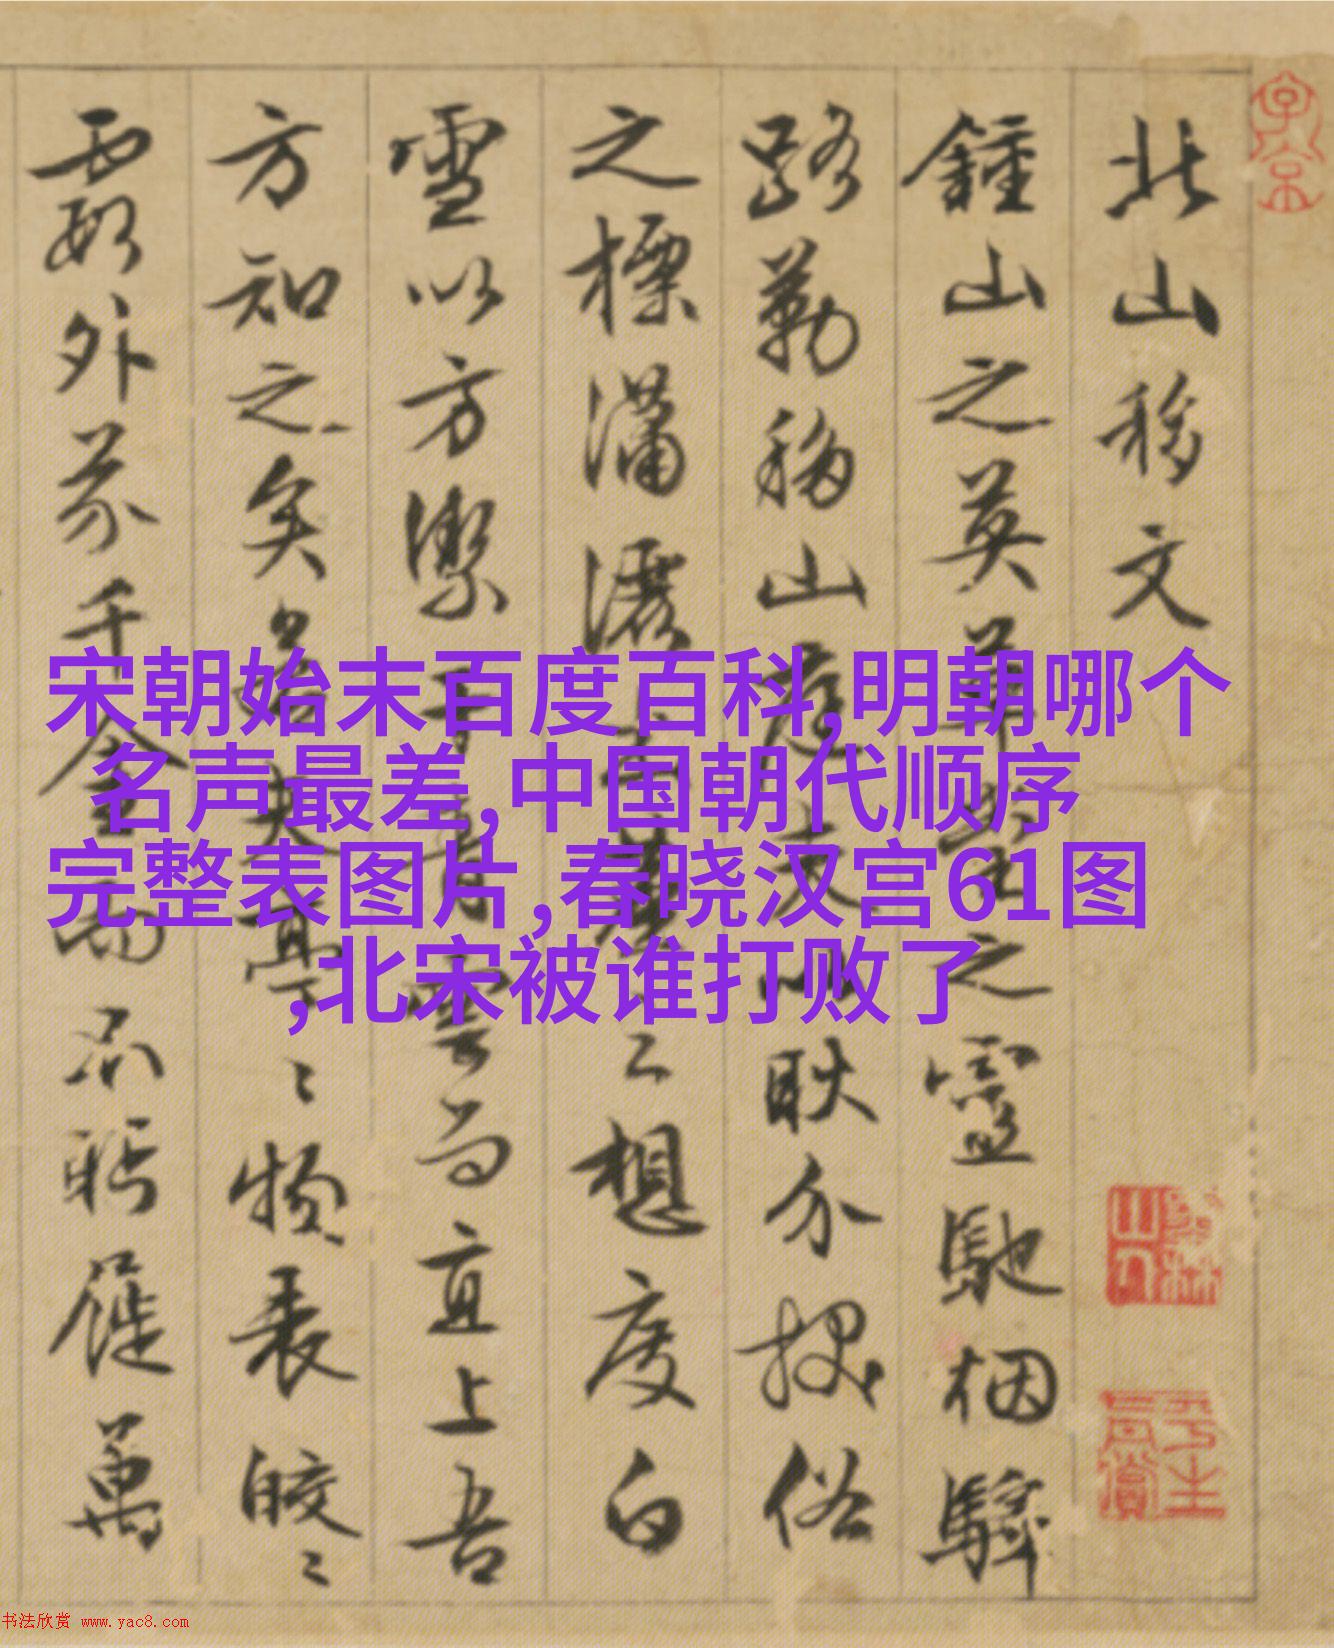 北山移文
鍾山之英草堂之靈馳烟驛
路勒移山庭夫以耿介拔俗
之標瀟灑出塵之想度白
雪以方潔干青雲而直上吾
方知之矣若其亭〻物表皎〻
霞外芥千金而不眄屣萬
宋朝始末百度百科,明朝哪个
名声最差,中国朝代顺序
完整表图片,春晓汉宫61图
,北宋被谁打败了
书法欣赏 www.yac8.com